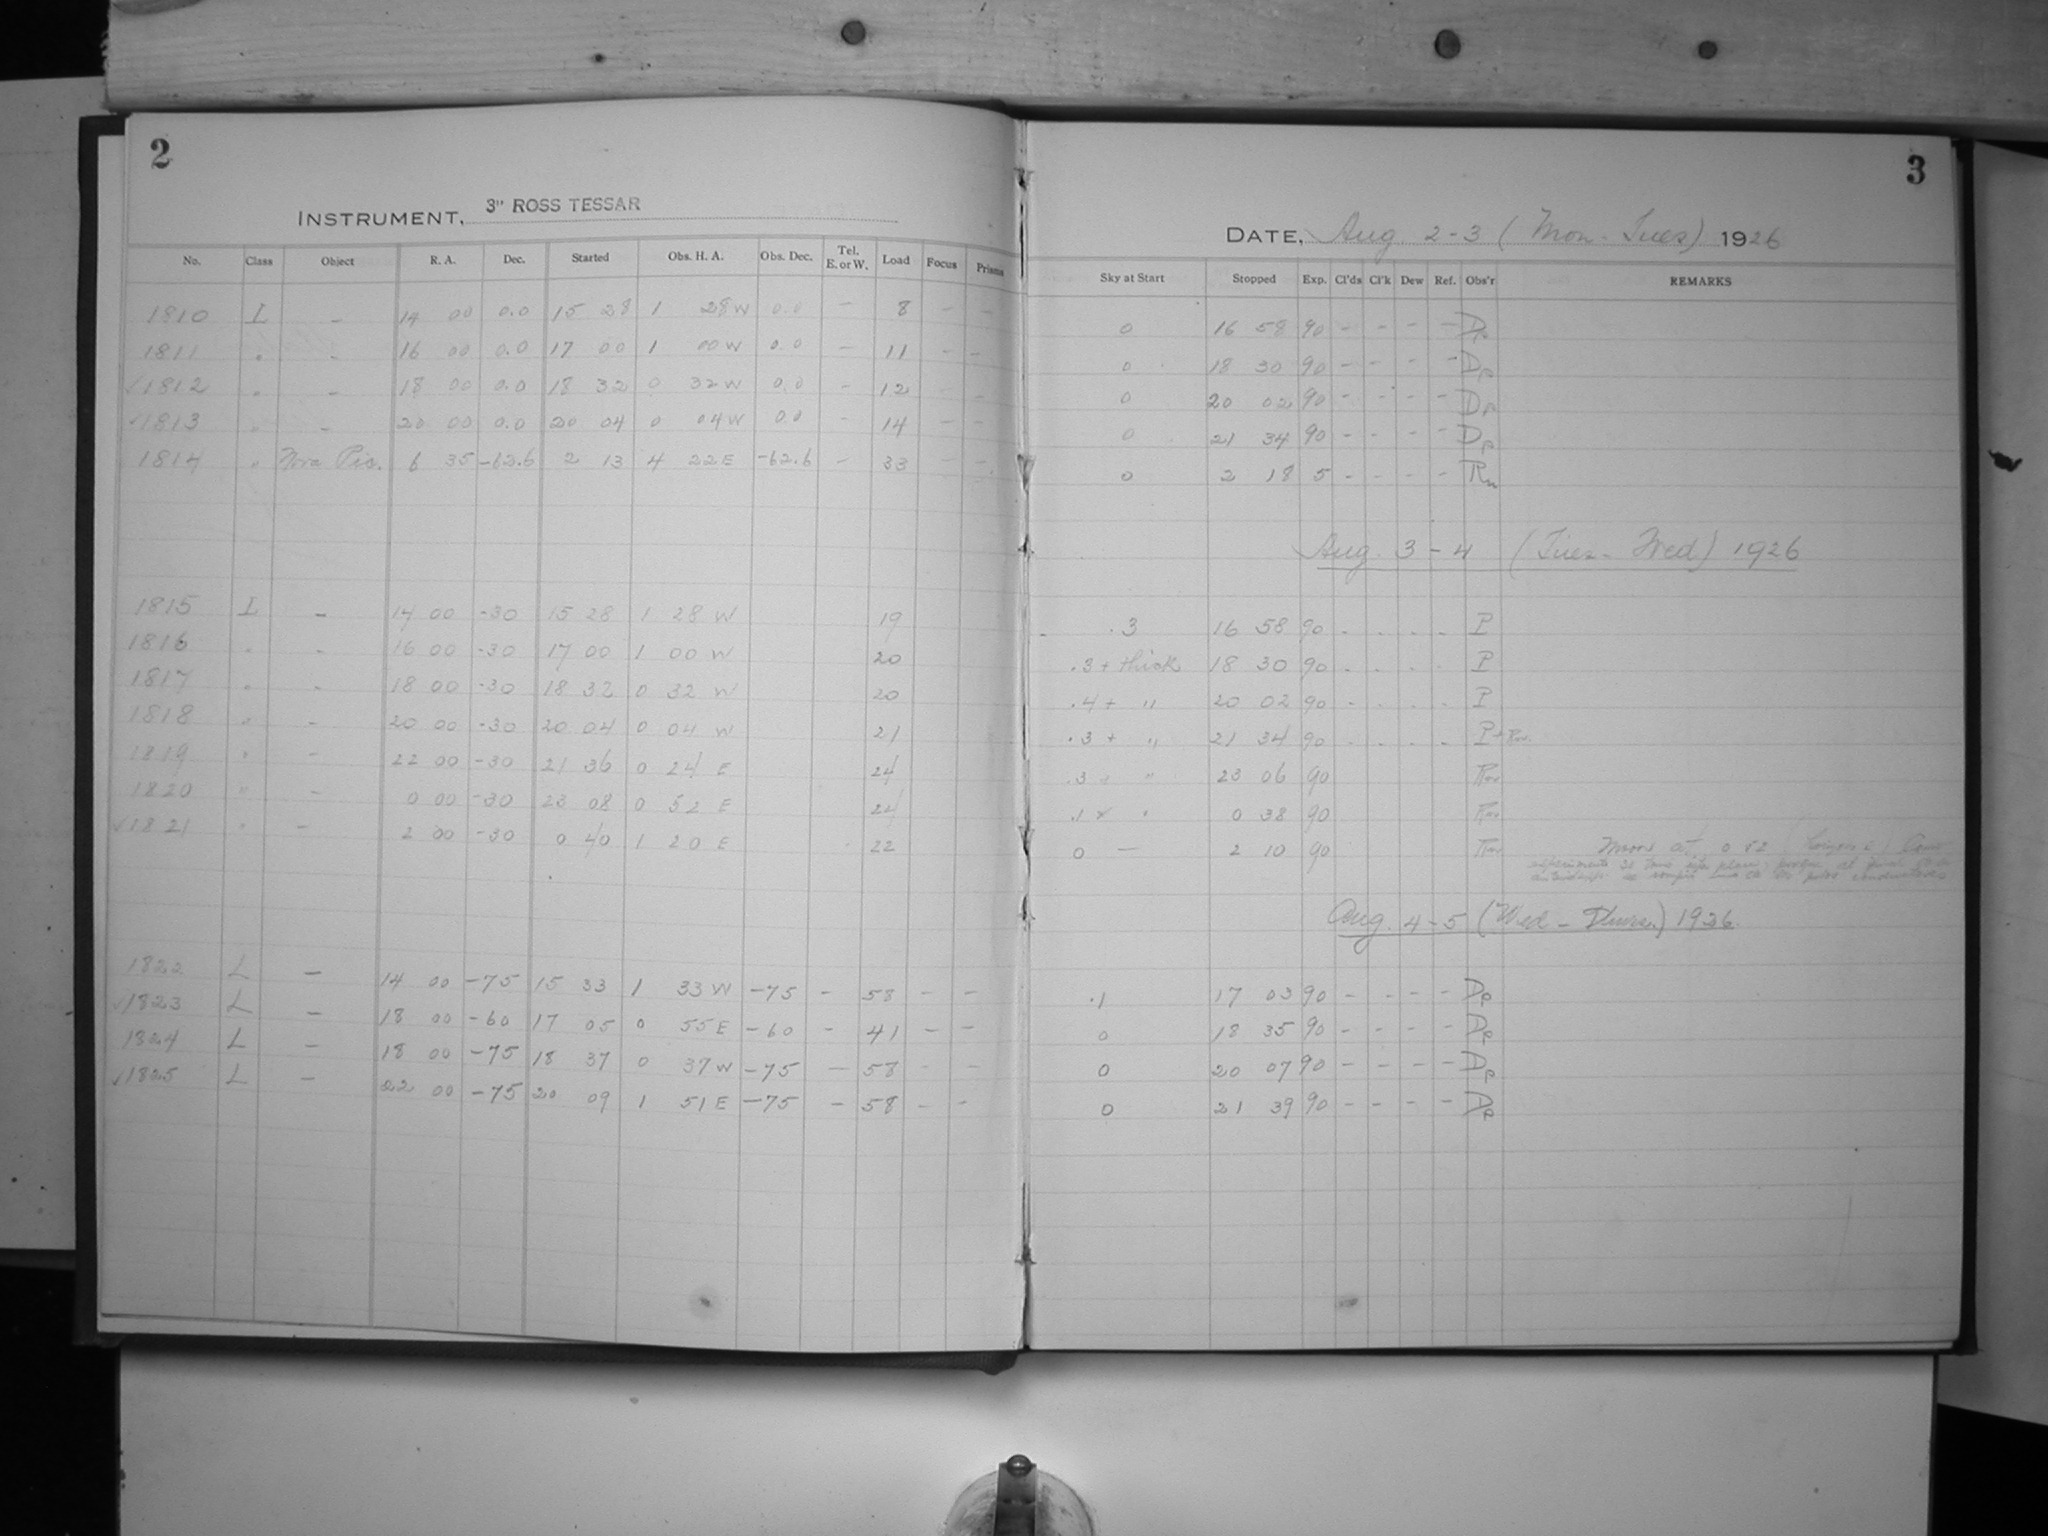 2
INSTRUMENT, 3" ROSS TESSAR
No. Class Object R. A. Dec. Started Obs. H. A. Obs. Dec. Tel. E. or W. Load Focus Prisms
1810 L – 14 00 0.0 15 28 1 28 W 0.0 – 8 – –
1811 " – 16 00 0.0 17 00 1 00 W 0.0 – 11 – –
✓1812 " – 18 00 0.0 18 32 0 32 W 0.0 – 12 –
✓1813 " – 20 00 0.0 20 04 0 04 W 0.0 – 14 – –
1814 " Nova Pic. 6 35 -62.6 2 13 4 22 E -62.6 – 33 – –
1815 L – 14 00 -30 15 28 1 28 W 19
1816 " – 16 00 -30 17 00 1 00 W 20
1817 " – 18 00 -30 18 32 0 32 W 20
1818 " – 20 00 -30 20 04 0 04 W 21
1819 " – 22 00 -30 21 36 0 24 E 24
1820 " – 0 00 -30 23 08 0 52 E 24
✓1821 " – 2 00 -30 0 40 1 20 E 22
1822 L – 14 00 -75 15 33 1 33 W -75 – 58 – –
✓1823 L – 18 00 -60 17 05 0 55 E -60 – 41 – –
1824 L – 18 00 -75 18 37 0 37 W -75 – 58 – –
✓1825 L – 22 00 -75 20 09 1 51 E -75 – 58 – –
3
DATE, Aug 2-3 (Mon-Tues) 1926
Sky at Start Stopped Exp. Cl'ds Cl'k Dew Ref. Obs'r REMARKS
0 16 58 90 – – – –
0 18 30 90 – – – –
0 20 02 90 – – – –
0 21 34 90 – – – –
0 2 18 5 – – – –
Aug. 3-4 (Tues-Wed) 1926
.3 16 58 90 - - - - P
.3 + thick 18 30 90 - - - - P
.4 + " 20 02 90 - - - - P
.3 + " 21 34 90 - - - - P +
.3 + " 23 06 90
.1 0 38 90
0 – 2 10 90 Moon at
Aug. 4-5 (Wed-Thurs.) 1926.
.1 17 03 90 – – – –
0 18 35 90 – – – –
0 20 07 90 – – – –
0 21 39 90 – – – –